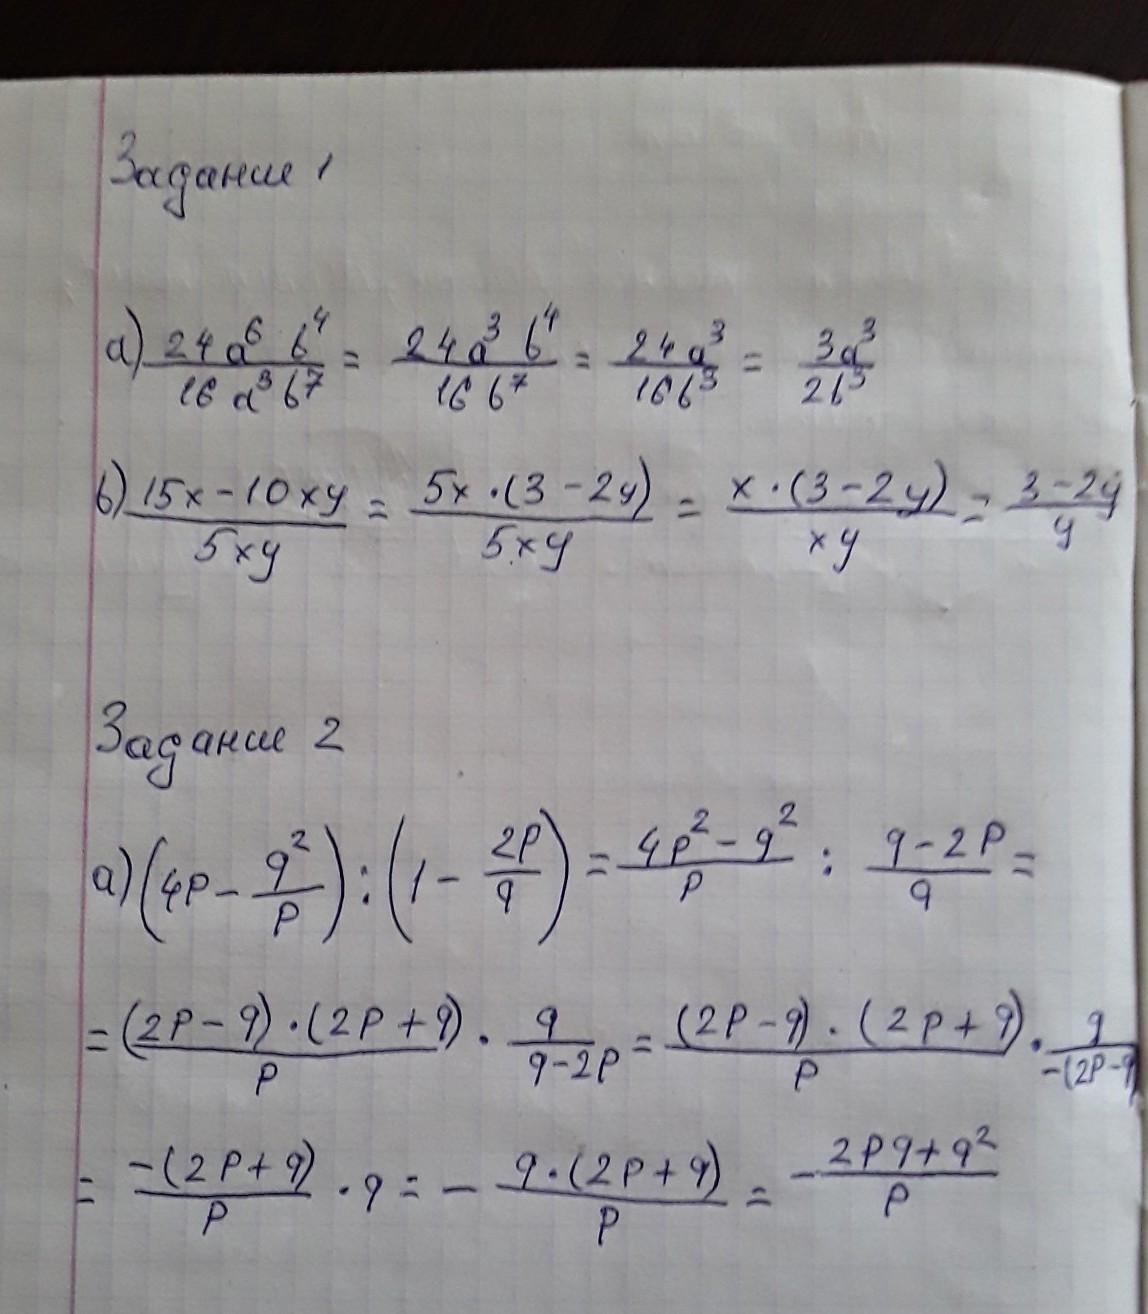 Задание 1
а) 24a⁶ b⁴ / 16 a³ b⁷ = 24a³ b⁴ / 16 b⁷ = 24a³ / 16b³ = 3a³ / 2b³
b) 15x - 10xy / 5xy = 5x · (3 - 2y) / 5xy = x · (3 - 2y) / xy = 3 - 2y / y
Задание 2
а) (4p - q² / p) : (1 - 2p / q) = 4p² - q² / p : q - 2p / q =
= (2p - q) · (2p + q) / p · q / q - 2p = (2p - q) · (2p + q) / p · q / -(2p - q
= -(2p + q) / p · q = - q · (2p + q) / p = - 2pq + q² / p